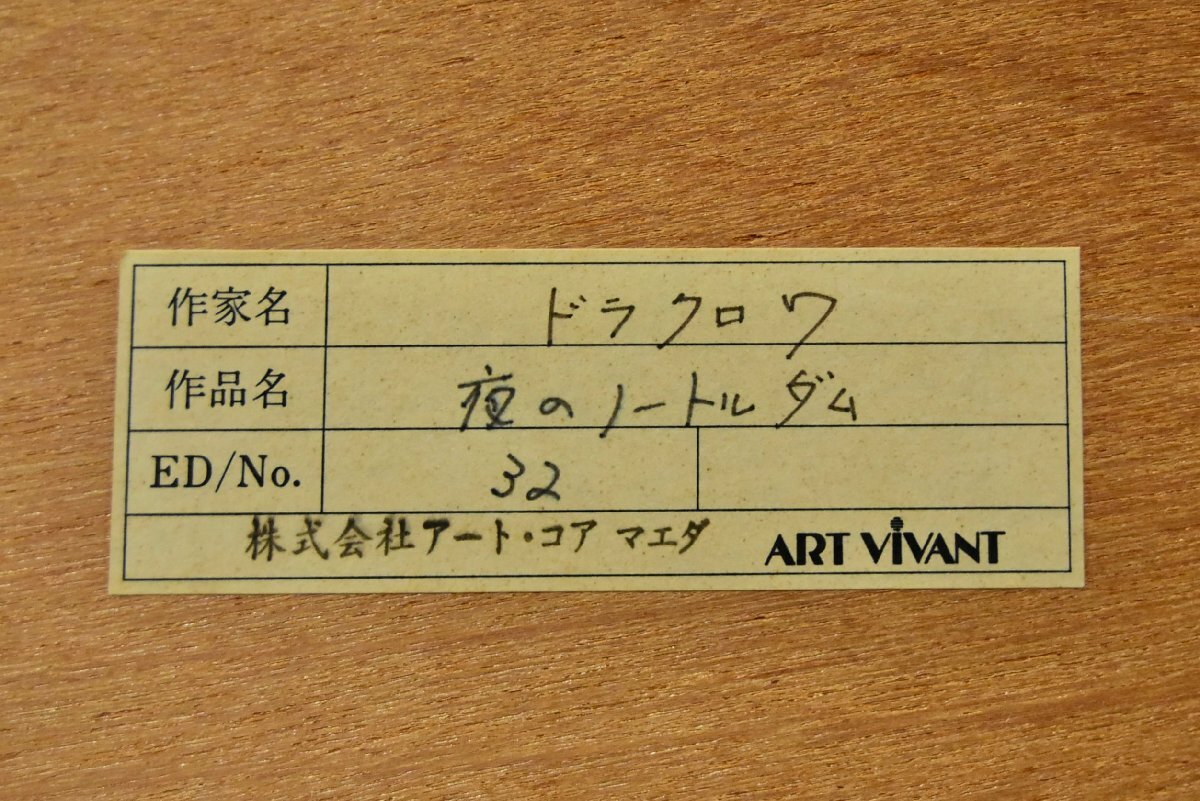 作家名 ドラクロワ
作品名 夜のノートルダム
ED/No. 32
株式会社アート・コア マエダ ART ViVANT